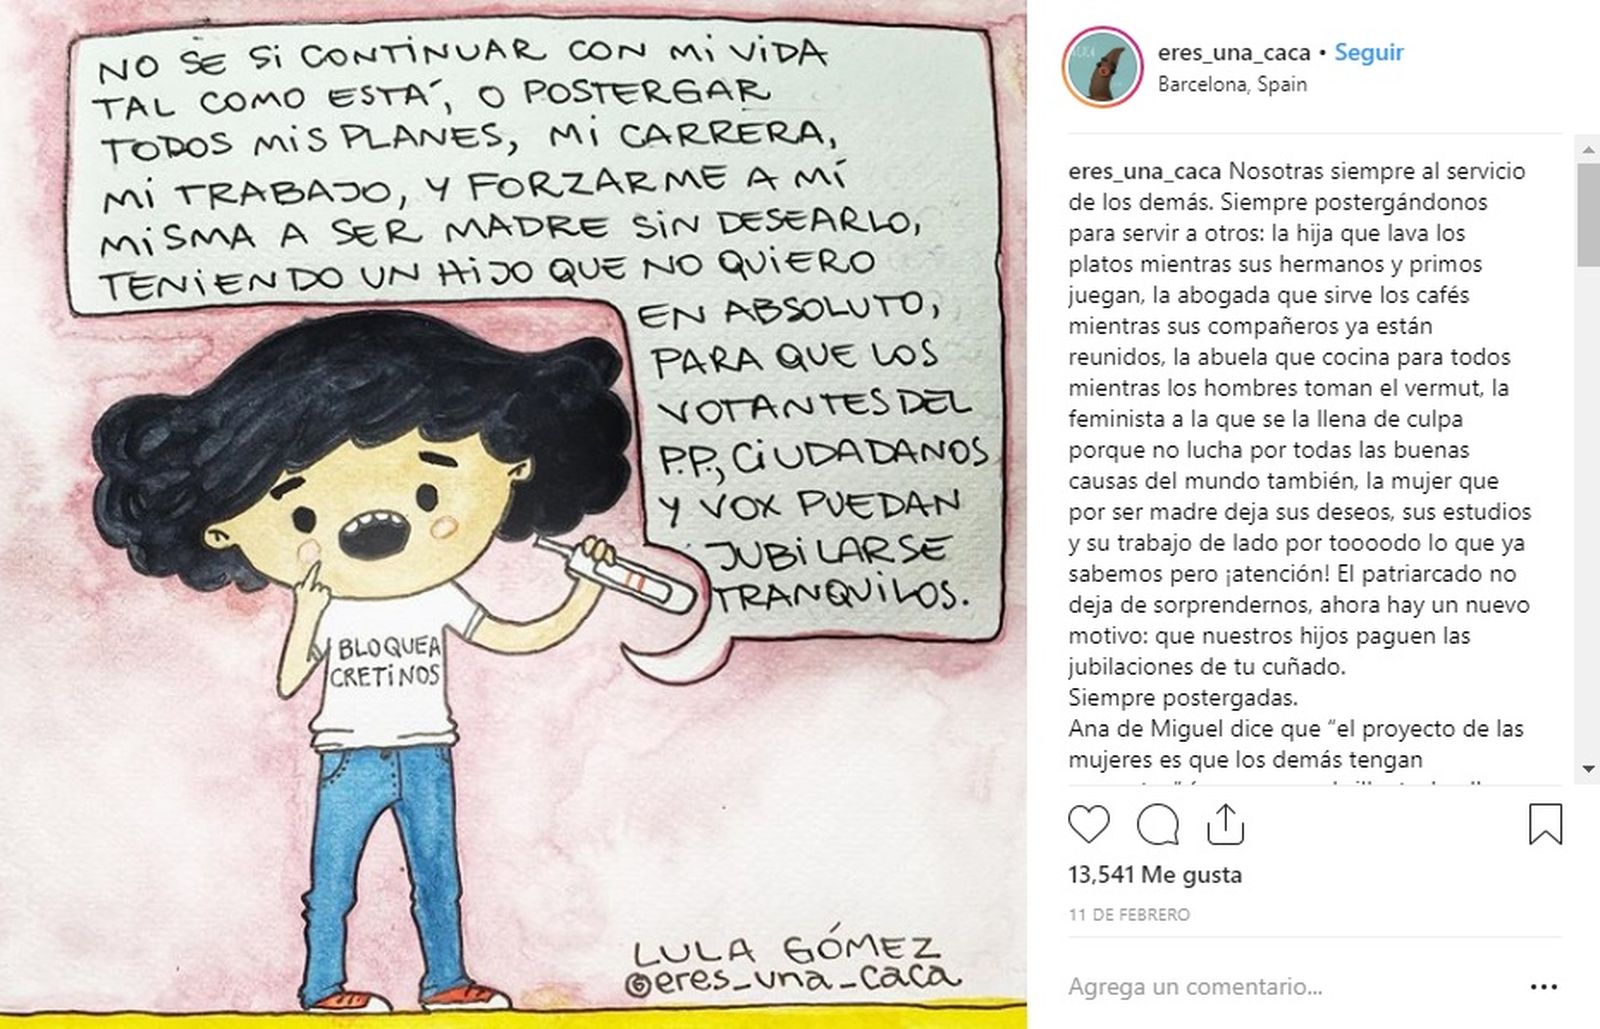 NO SE SI CONTINUAR CON MI VIDA
TAL COMO ESTÁ, O POSTERGAR
TODOS MIS PLANES, MI CARRERA,
MI TRABAJO, Y FORZARME A MÍ
MISMA A SER MADRE SIN DESEARLO,
TENIENDO UN HIJO QUE NO QUIERO
EN ABSOLUTO,
PARA QUE LOS
VOTANTES DEL
P.P., CIUDADANOS
Y VOX PUEDAN
JUBILARSE
TRANQUILOS.
BLOQUEA
CRETINOS
LULA GÓMEZ
@eres_una_caca
eres_una_caca • Seguir
Barcelona, Spain
eres_una_caca Nosotras siempre al servicio
de los demás. Siempre postergándonos
para servir a otros: la hija que lava los
platos mientras sus hermanos y primos
juegan, la abogada que sirve los cafés
mientras sus compañeros ya están
reunidos, la abuela que cocina para todos
mientras los hombres toman el vermut, la
feminista a la que se la llena de culpa
porque no lucha por todas las buenas
causas del mundo también, la mujer que
por ser madre deja sus deseos, sus estudios
y su trabajo de lado por toooodo lo que ya
sabemos pero ¡atención! El patriarcado no
deja de sorprendernos, ahora hay un nuevo
motivo: que nuestros hijos paguen las
jubilaciones de tu cuñado.
Siempre postergadas.
Ana de Miguel dice que “el proyecto de las
mujeres es que los demás tengan
13,541 Me gusta
11 DE FEBRERO
Agrega un comentario...